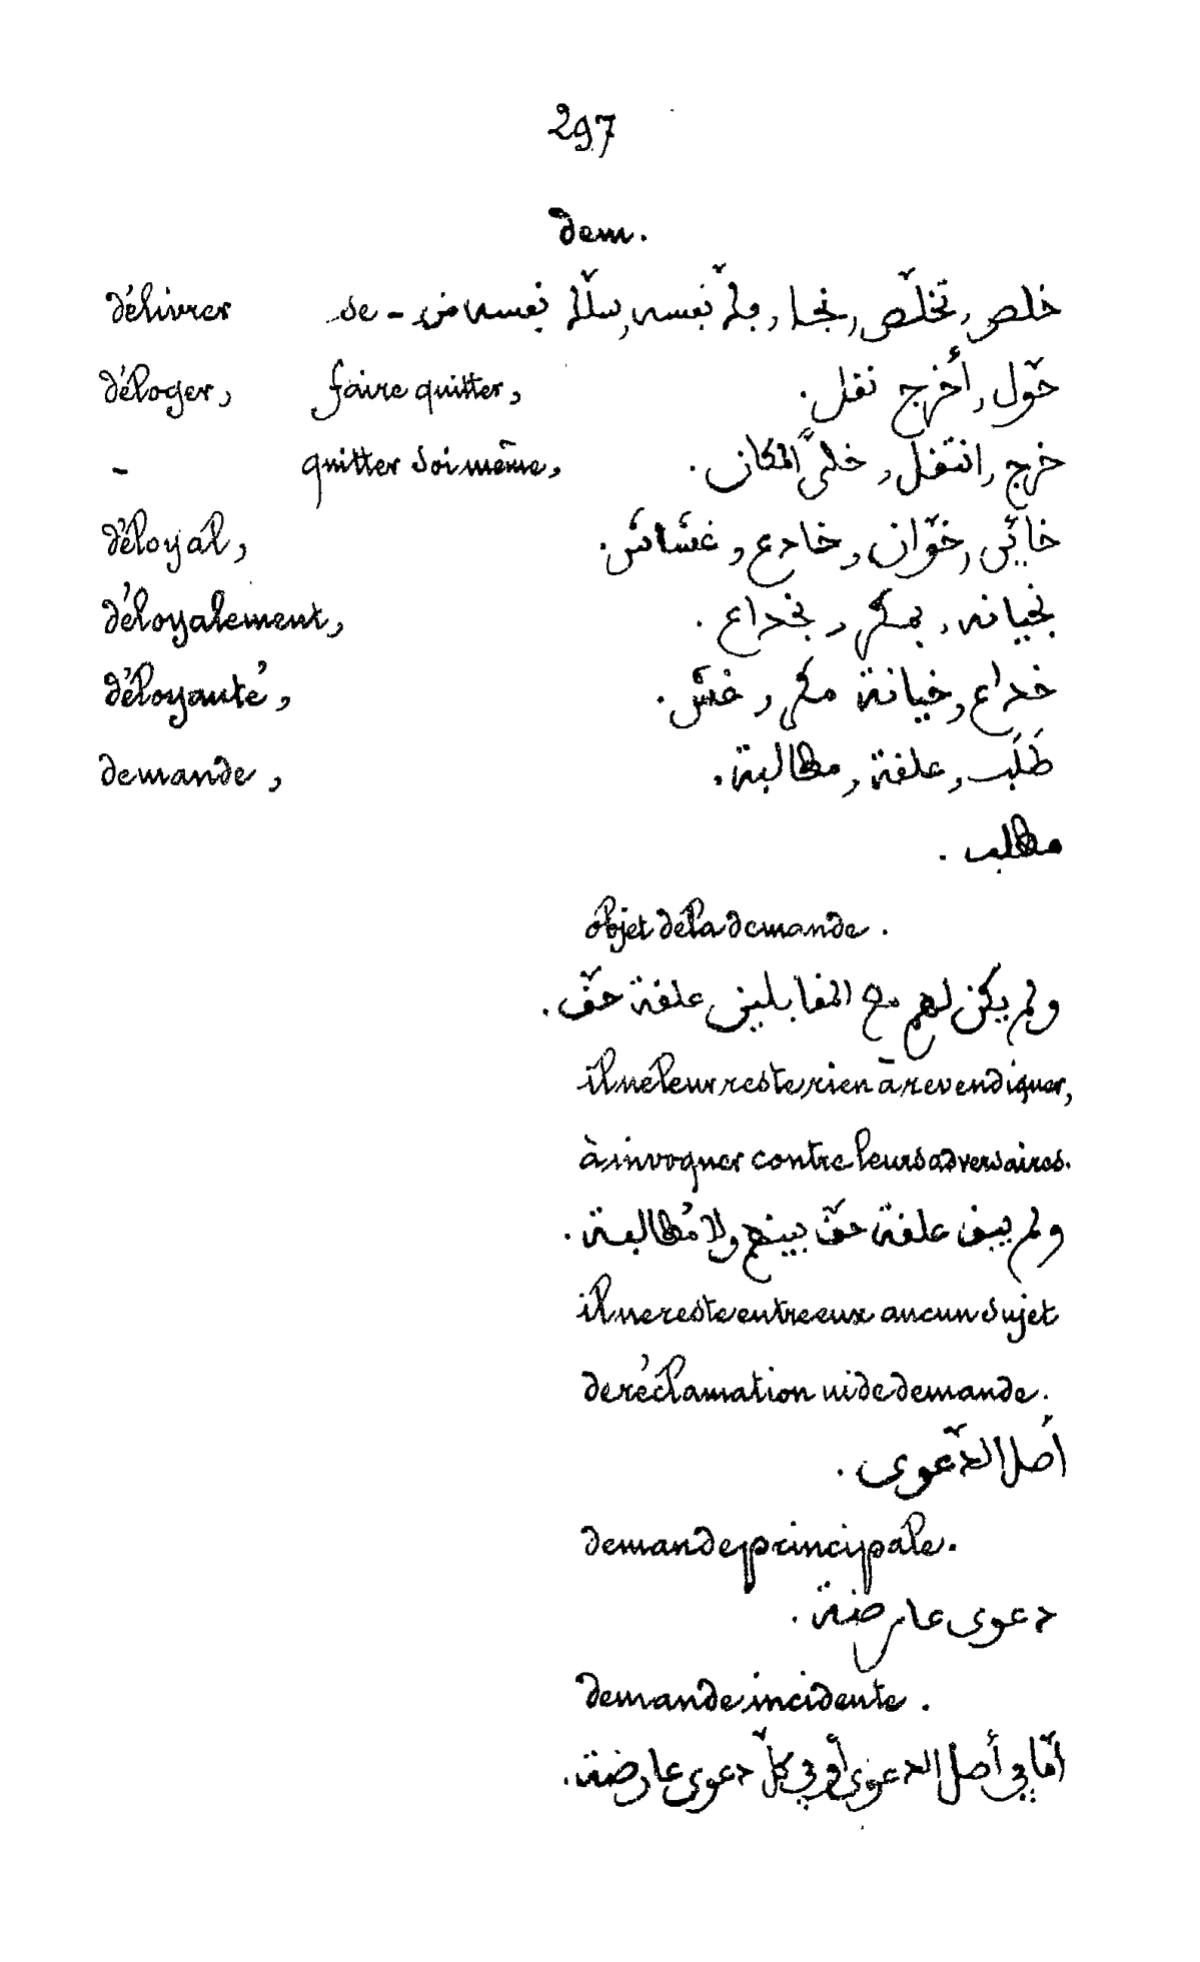 297
dem.
délivrer se - خلص, تخلّص, نجا, فكّ نفسه, سلّك نفسه من
déloger, faire quitter, حوّل, أخرج نقل.
- quitter soi même, خرج, انتقل, خلىّ المكان.
déloyal, خاين, خوّان, خادع, غشاش.
déloyalement, بخيانه, بمكر, بخداع.
déloyauté, خداع, خيانة مكر, غشّ.
demande, طَلَب, علفة, مطالبة.
مطلب.
objet de la demande.
ولم يكن لهم مع المقابلين علفة حقّ.
il ne leur reste rien à revendiquer,
à invoquer contre leurs adversaires.
ولم يبق علفة حقّ بينهم ولا مُطالبة.
il ne reste entre eux aucun sujet
de réclamation ni de demande.
أصل الدّعوى.
demande principale.
دعوى عارضة.
demande incidente.
أمّا في أصل الدعوى أو في كلّ دعوى عارضة.